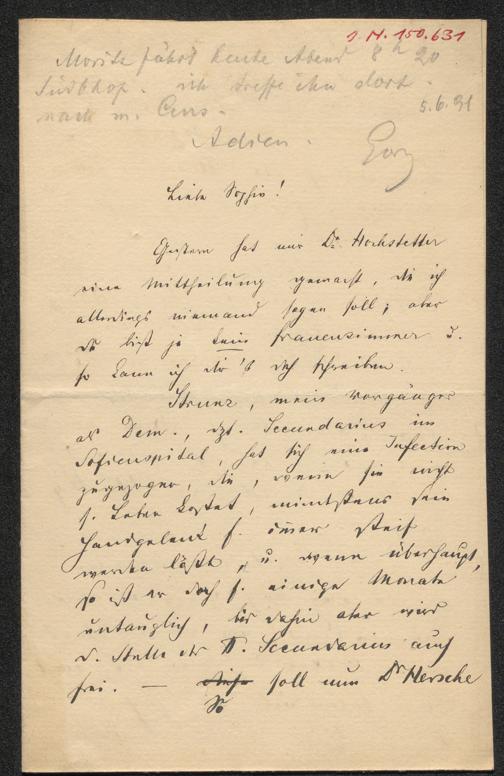 J. N. 150.631
Moritz fährt heute Abend 8 h 20
Südbhof. ich treffe ihn dort.
nach m. Curs.
5.6.91
Adieu.
Liebe Sophie!
Gestern hat mir Dr. Hochstetter
eine Mittheilung gemacht, die ich
allerdings niemand sagen soll; aber
du bist ja kein Frauenzimmer u.
so kann ich dir's doch schreiben.
Strunz, mein Vorgänger
als Dem., dzt. Secundarius im
Sofienspital, hat sich eine Infection
zugezogen, die, wenn sie nicht
s. Leben kostet, mindestens sein
Handgelenk f. immer steif
werden läßt, u. wenn überhaupt,
so ist er doch f. einige Monate
untauglich, bis dahin aber wird
d. Stelle des II. Secundarius auf
frei. — So soll nun Dr Hersche